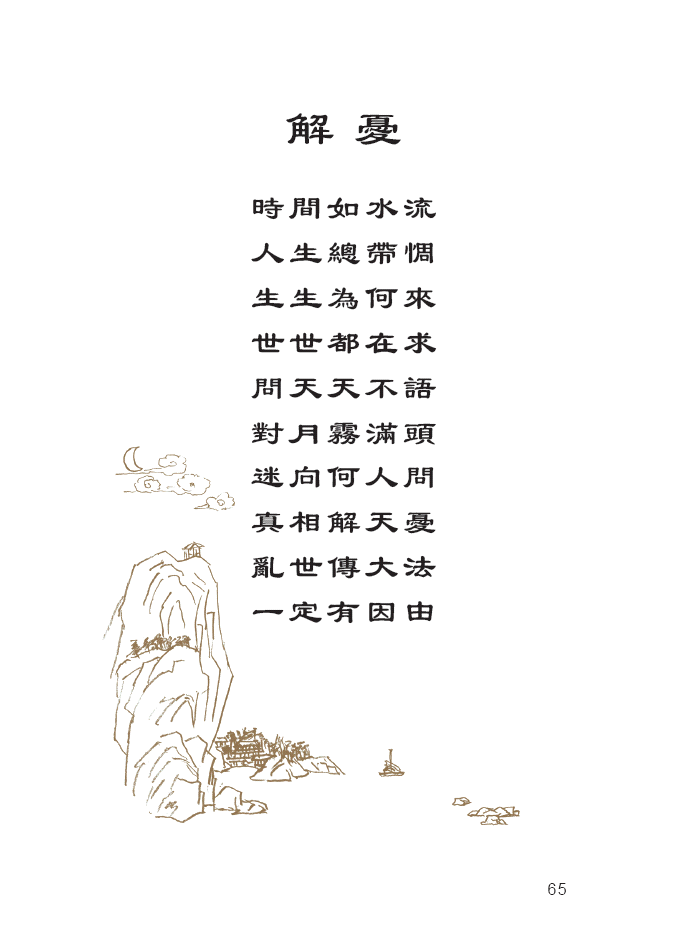 解憂
時間如水流
人生總帶惆
生生為何來
世世都在求
問天天不語
對月霧滿頭
迷向何人問
真相解天憂
亂世傳大法
一定有因由
65